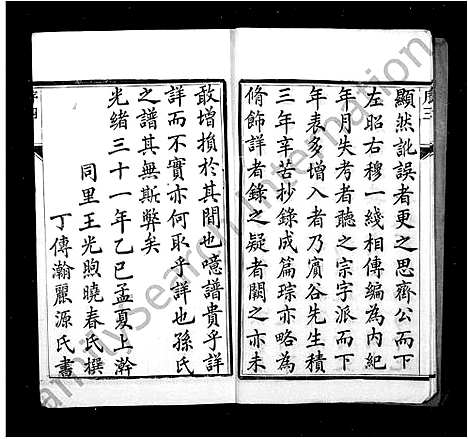 顯然訛誤者更之思齊公而下
左昭右穆一綫相傳編為內紀
年月失考者聽之宗字派而下
年表多增入者乃賓谷先生積
三年辛苦抄錄成篇琮亦略為
脩飾詳者錄之疑者闕之亦未
敢增損於其間也噫譜貴乎詳
詳而不實亦何取乎詳也孫氏
之譜其無斯弊矣
光緒三十一年乙巳孟夏上澣
同里王光煦曉春氏撰
丁傳瀚麗源氏書
FamilySearch International